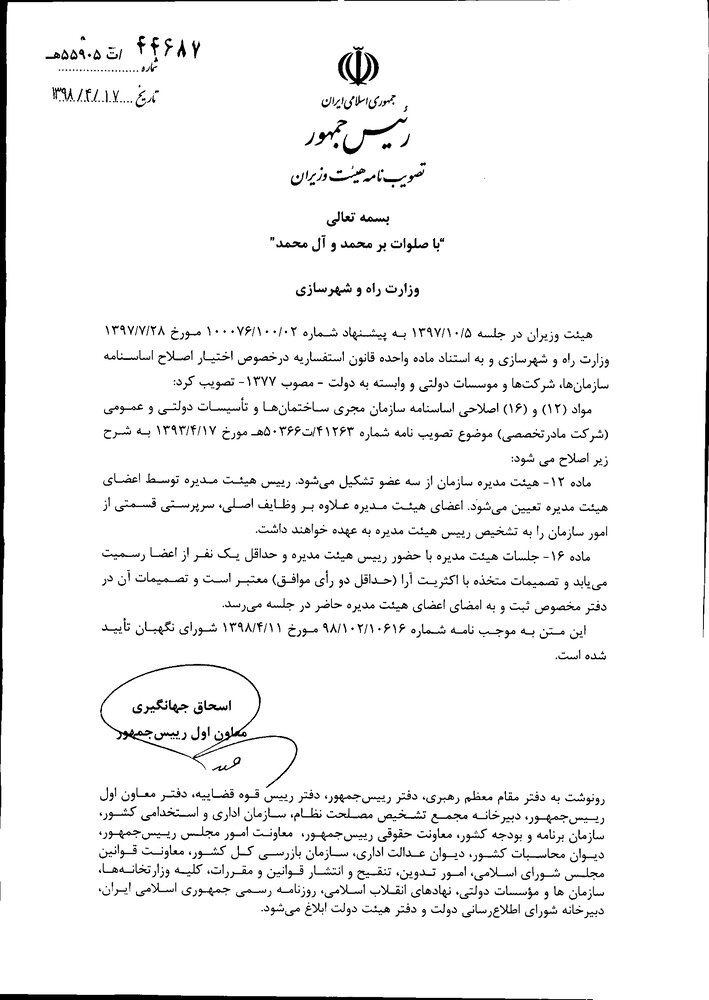 شماره ۴۴۶۸۷/ت۵۵۹۰۵هـ
تاریخ ۱۳۹۸/۴/۱۷
جمهوری اسلامی ایران
رئیس جمهور
تصویب نامه هیئت وزیران
بسمه تعالی
"با صلوات بر محمد و آل محمد"
وزارت راه و شهرسازی
هیئت وزیران در جلسه ۱۳۹۷/۱۰/۵ به پیشنهاد شماره ۱۰۰۰۷۶/۱۰۰/۰۲ مورخ ۱۳۹۷/۷/۲۸
وزارت راه و شهرسازی و به استناد ماده واحده قانون استفساریه درخصوص اختیار اصلاح اساسنامه
سازمان‌ها، شرکت‌ها و موسسات دولتی و وابسته به دولت - مصوب ۱۳۷۷- تصویب کرد:
مواد (۱۲) و (۱۶) اصلاحی اساسنامه سازمان مجری ساختمان‌ها و تأسیسات دولتی و عمومی
(شرکت مادرتخصصی) موضوع تصویب نامه شماره ۴۱۲۶۳/ت۵۰۳۶۶هـ مورخ ۱۳۹۳/۴/۱۷ به شرح
زیر اصلاح می شود:
ماده ۱۲- هیئت مدیره سازمان از سه عضو تشکیل می‌شود. رییس هیئت مدیره توسط اعضای
هیئت مدیره تعیین می‌شود. اعضای هیئت مدیره علاوه بر وظایف اصلی، سرپرستی قسمتی از
امور سازمان را به تشخیص رییس هیئت مدیره به عهده خواهند داشت.
ماده ۱۶- جلسات هیئت مدیره با حضور رییس هیئت مدیره و حداقل یک نفر از اعضا رسمیت
می‌یابد و تصمیمات متخذه با اکثریت آرا (حداقل دو رأی موافق) معتبر است و تصمیمات آن در
دفتر مخصوص ثبت و به امضای اعضای هیئت مدیره حاضر در جلسه می‌رسد.
این متن به موجب نامه شماره ۹۸/۱۰۲/۱۰۶۱۶ مورخ ۱۳۹۸/۴/۱۱ شورای نگهبان تأیید
شده است.
اسحاق جهانگیری
معاون اول رییس‌جمهور
رونوشت به دفتر مقام معظم رهبری، دفتر رییس‌جمهور، دفتر رییس قوه قضاییه، دفتر معاون اول
رییس‌جمهور، دبیرخانه مجمع تشخیص مصلحت نظام، سازمان اداری و استخدامی کشور،
سازمان برنامه و بودجه کشور، معاونت حقوقی رییس‌جمهور، معاونت امور مجلس رییس‌جمهور،
دیوان محاسبات کشور، دیوان عدالت اداری، سازمان بازرسی کل کشور، معاونت قوانین
مجلس شورای اسلامی، امور تدوین، تنقیح و انتشار قوانین و مقررات، کلیه وزارتخانه‌ها،
سازمان ها و مؤسسات دولتی، نهادهای انقلاب اسلامی، روزنامه رسمی جمهوری اسلامی ایران،
دبیرخانه شورای اطلاع‌رسانی دولت و دفتر هیئت دولت ابلاغ می‌شود.